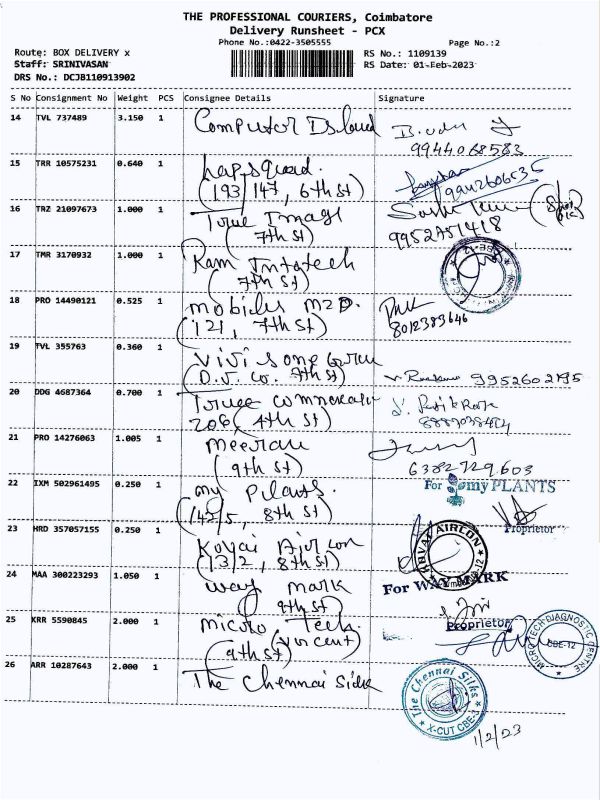 THE PROFESSIONAL COURIERS, Coimbatore
Delivery Runsheet - PCX
Phone No.:0422-3505555
Page No.:2
Route: BOX DELIVERY x
Staff: SRINIVASAN
DRS No.: DCJB110913902
RS No.: 1109139
RS Date: 01-Feb-2023
S No Consignment No Weight PCS Consignee Details Signature
14 TVL 737489 3.150 1 Computer
9944068583
15 TRR 10575231 0.640 1 Lapsquad.
(193/147, 6th st)
16 TRZ 21097673 1.000 1 True Image
(7th st)
17 TMR 3170932 1.000 1 Ram Infotech
(7th st)
18 PRO 14490121 0.525 1 mobiles m2D.
(121, 7th st)
8012383646
19 TVL 355763 0.360 1
(D.J. Co. 7th st)
9952602195
20 DDG 4687364 0.700 1
206 (4th st)
21 PRO 14276063 1.005 1 meeran
(9th st)
6382729603
22 IXM 502961495 0.250 1 my Plants.
(142/5, 8th st)
For my PLANTS
Proprietor
23 HRD 357057155 0.250 1 Kovai Air con
(13/2, 8th st)
KOVAI AIRCON
24 MAA 300223293 1.050 1 way mark
(9th st)
For WAY MARK
Proprietor
25 KRR 5590845 2.000 1 Micro Tech
(vincent)
(9th st)
MICROTECH DIAGNOSTIC CENTRE
CBE-12
26 ARR 10287643 2.000 1 The Chennai Silk
The Chennai Silks
X-CUT CBE-1
1/2/23